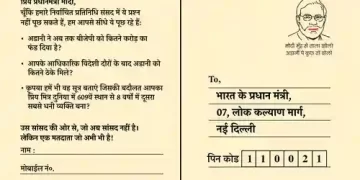 प्रिय प्रधानमंत्री मोदी,
चूंकि हमारे निर्वाचित प्रतिनिधि संसद में ये प्रश्न
नहीं पूछ सकते हैं, हम आपसे सीधे ये पूछ रहे हैं:
• अडानी ने अब तक बीजेपी को कितने करोड़ का
फंड दिया है?
• आपके आधिकारिक विदेशी दौरों के बाद अडानी को
कितने ठेके मिले?
• कृपया हमें भी वह सूत्र बताएं जिसकी बदौलत आपका
प्रिय मित्र दुनिया में 609वें स्थान से 8 वर्षों में दूसरा
सबसे धनी व्यक्ति बना?
उस सांसद की ओर से, जो अब सांसद नहीं है।
लेकिन एक मतदाता जो अभी भी है!
नाम :
मोबाईल नं०.
To,
भारत के प्रधान मंत्री,
07, लोक कल्याण मार्ग,
नई दिल्ली
पिन कोड 1 1 0 0 2 1